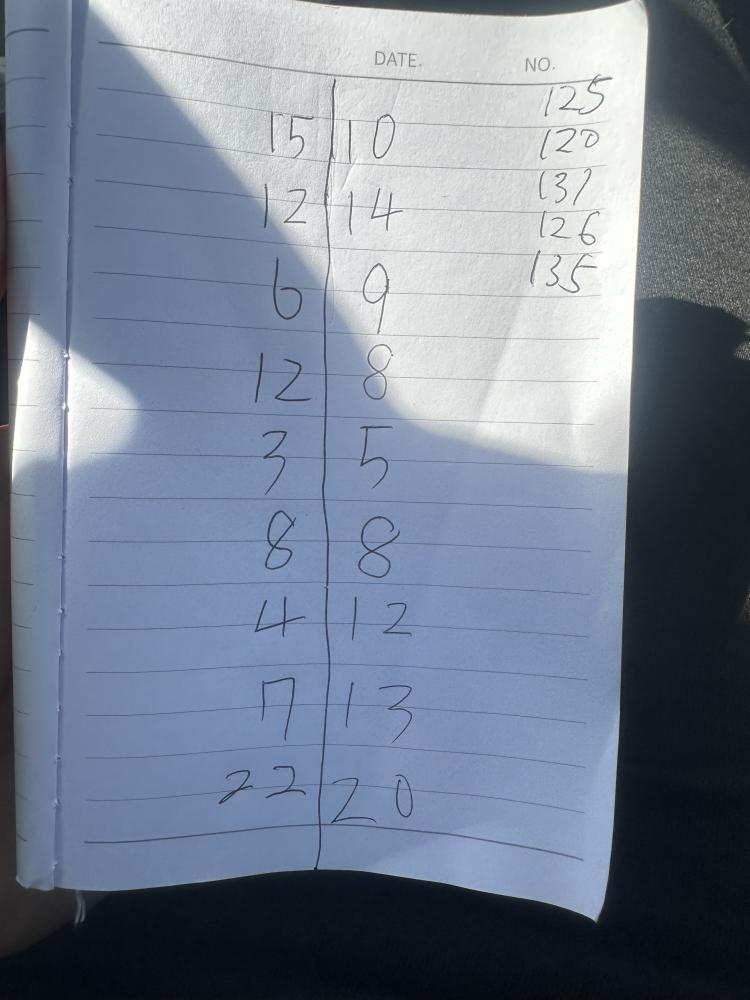 DATE. NO.
125
15 10
120
137
12 14
126
135
6 9
12 8
3 5
8 8
4 12
7 13
22 20